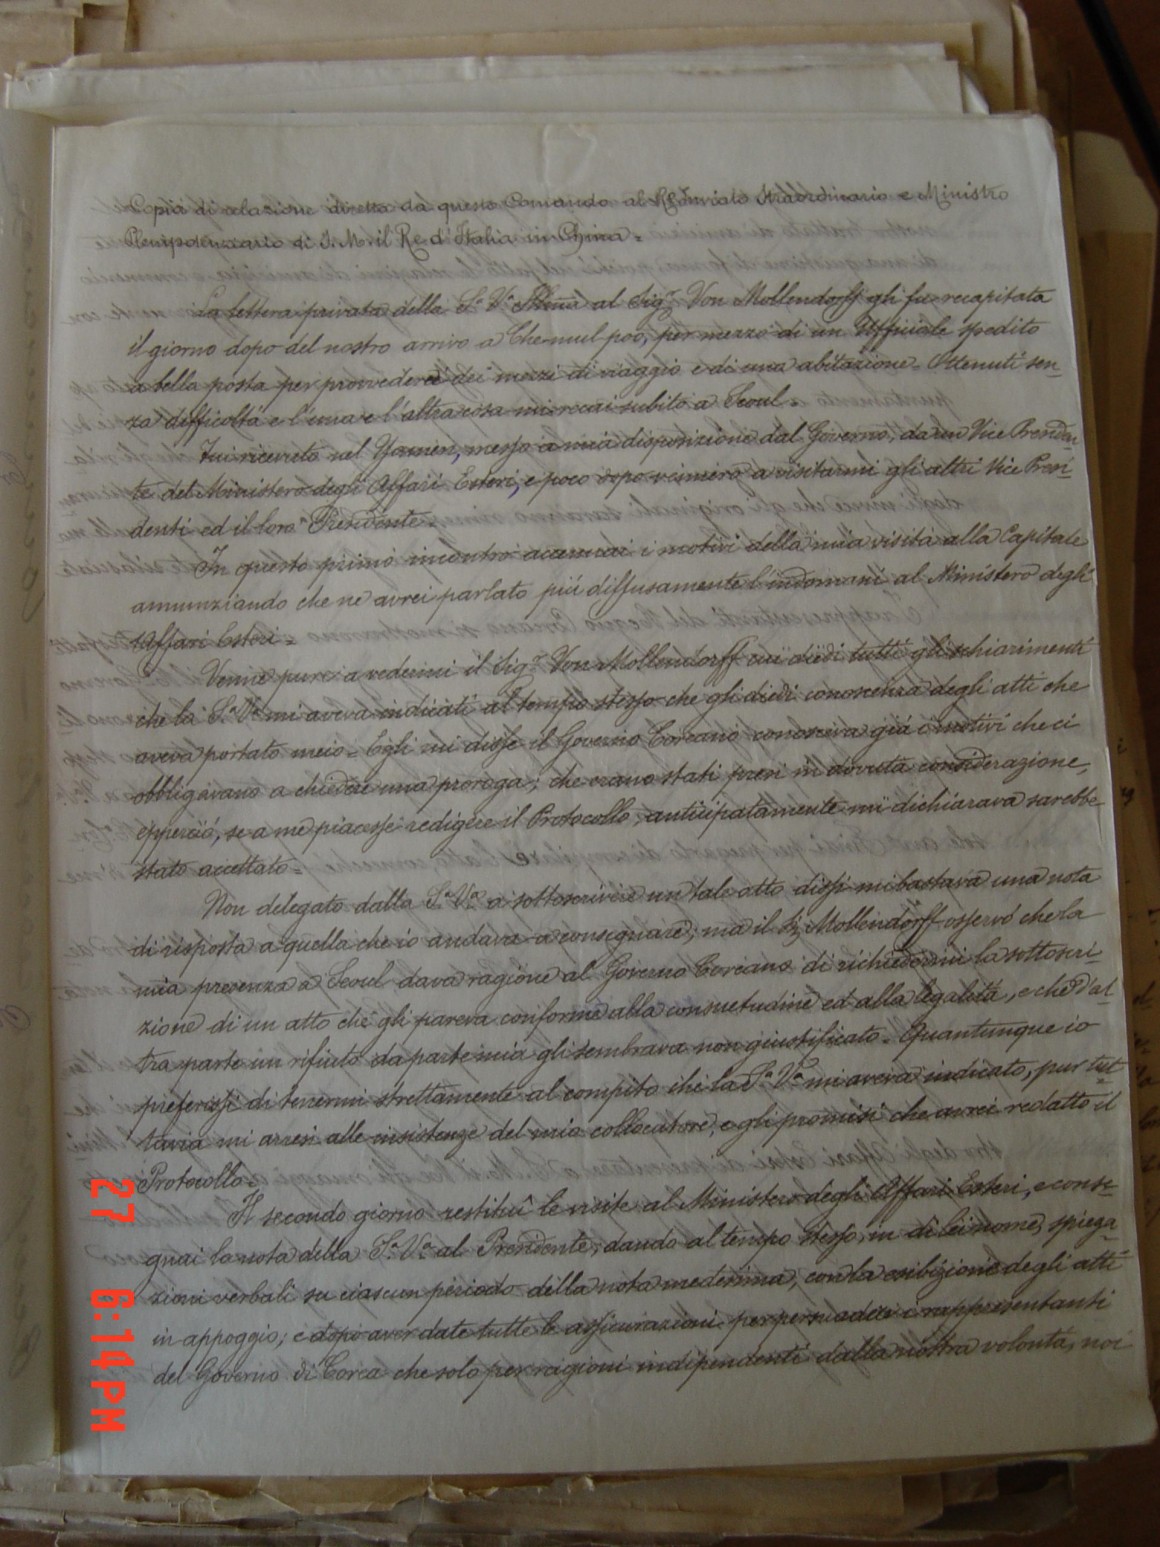 Copia di relazione diretta da questo Comando al R° Inviato Straordinario e Ministro
Plenipotenziario di S. M. il Re d'Italia in China =
La lettera privata della S.ª V.ª Illma al Sig.r Von Mollendorff gli fu recapitata
il giorno dopo del nostro arrivo a Chemulpoo, per mezzo di un Ufficiale spedito
a bella posta per provvedere dei mezzi di viaggio e di una abitazione = Ottenuti sen-
za difficoltà e l'una e l'altra cosa mi recai subito a Seoul =
Fui ricevuto nel Yamen, messo a mia disposizione dal Governo, da un Vice Presiden
te del Ministero degli Affari Esteri, e poco dopo vennero a visitarmi gli altri Vice Presi-
denti ed il loro Presidente =
In questo primo incontro accennai i motivi della mia visita alla Capitale
annunziando che ne avrei parlato più diffusamente l'indomani al Ministero degli
Affari Esteri =
Venne pure a vedermi il Sig.r Von Mollendorff cui diedi tutti gli schiarimenti
che la S.ª V.ª mi aveva indicati al tempo stesso che gli diedi conoscenza degli atti che
aveva portato meco = Egli mi disse il Governo Coreano conosceva già i motivi che ci
obbligavano a chiedere una proroga; che erano stati presi in dovuta considerazione,
epperciò, se a me piacesse redigere il Protocollo, anticipatamente mi dichiarava sarebbe
stato accettato =
Non delegato dalla S.ª V.ª a sottoscrivere un tale atto dissi mi bastava una nota
di risposta a quella che io andava a consegnare; ma il Sig. Mollendorff osservò che la
mia presenza a Seoul dava ragione al Governo Coreano di richiedermi la sottoscri-
zione di un atto che gli pareva conforme alla consuetudine ed alla legalità, e che d'al-
tra parte un rifiuto da parte mia gli sembrava non giustificato = Quantunque io
preferissi di tenermi strettamente al compito che la S.ª V.ª mi aveva indicato, pur tut
tavia mi arresi alle insistenze del mio collocutore, e gli promisi che avrei redatto il
Protocollo =
Il secondo giorno restituì le visite al Ministero degli Affari Esteri, e conse-
gnai la nota della S.ª V.ª al Presidente, dando al tempo stesso, in di lei nome, spiega
zioni verbali su ciascun periodo della nota medesima, con la esibizione degli atti
in appoggio; e dopo aver date tutte le assicurazioni per persuadere i rappresentanti
del Governo di Corea che solo per ragioni indipendenti dalla nostra volontà, noi
27 6:14PM